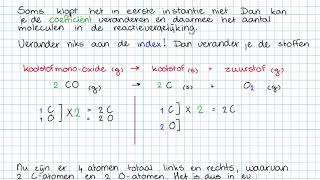 Soms klopt het in eerste instantie niet. Dan kan
je de coëfficiënt veranderen en daarmee het aantal
moleculen in de reactievergelijking.
Verander niks aan de index! Dan verander je de stoffen
koolstofmono-oxide (g) → koolstof (s) + zuurstof (g)
2 CO (g) → 2 C (s) + O2 (g)
1 C ] x 2 = 2 C 1 C ] x 2 = 2 C
1 O ] = 2 O 2 O ]
Nu zijn er 4 atomen totaal links en rechts, waarvan
2 C-atomen en 2 O-atomen. Het is dus in ev